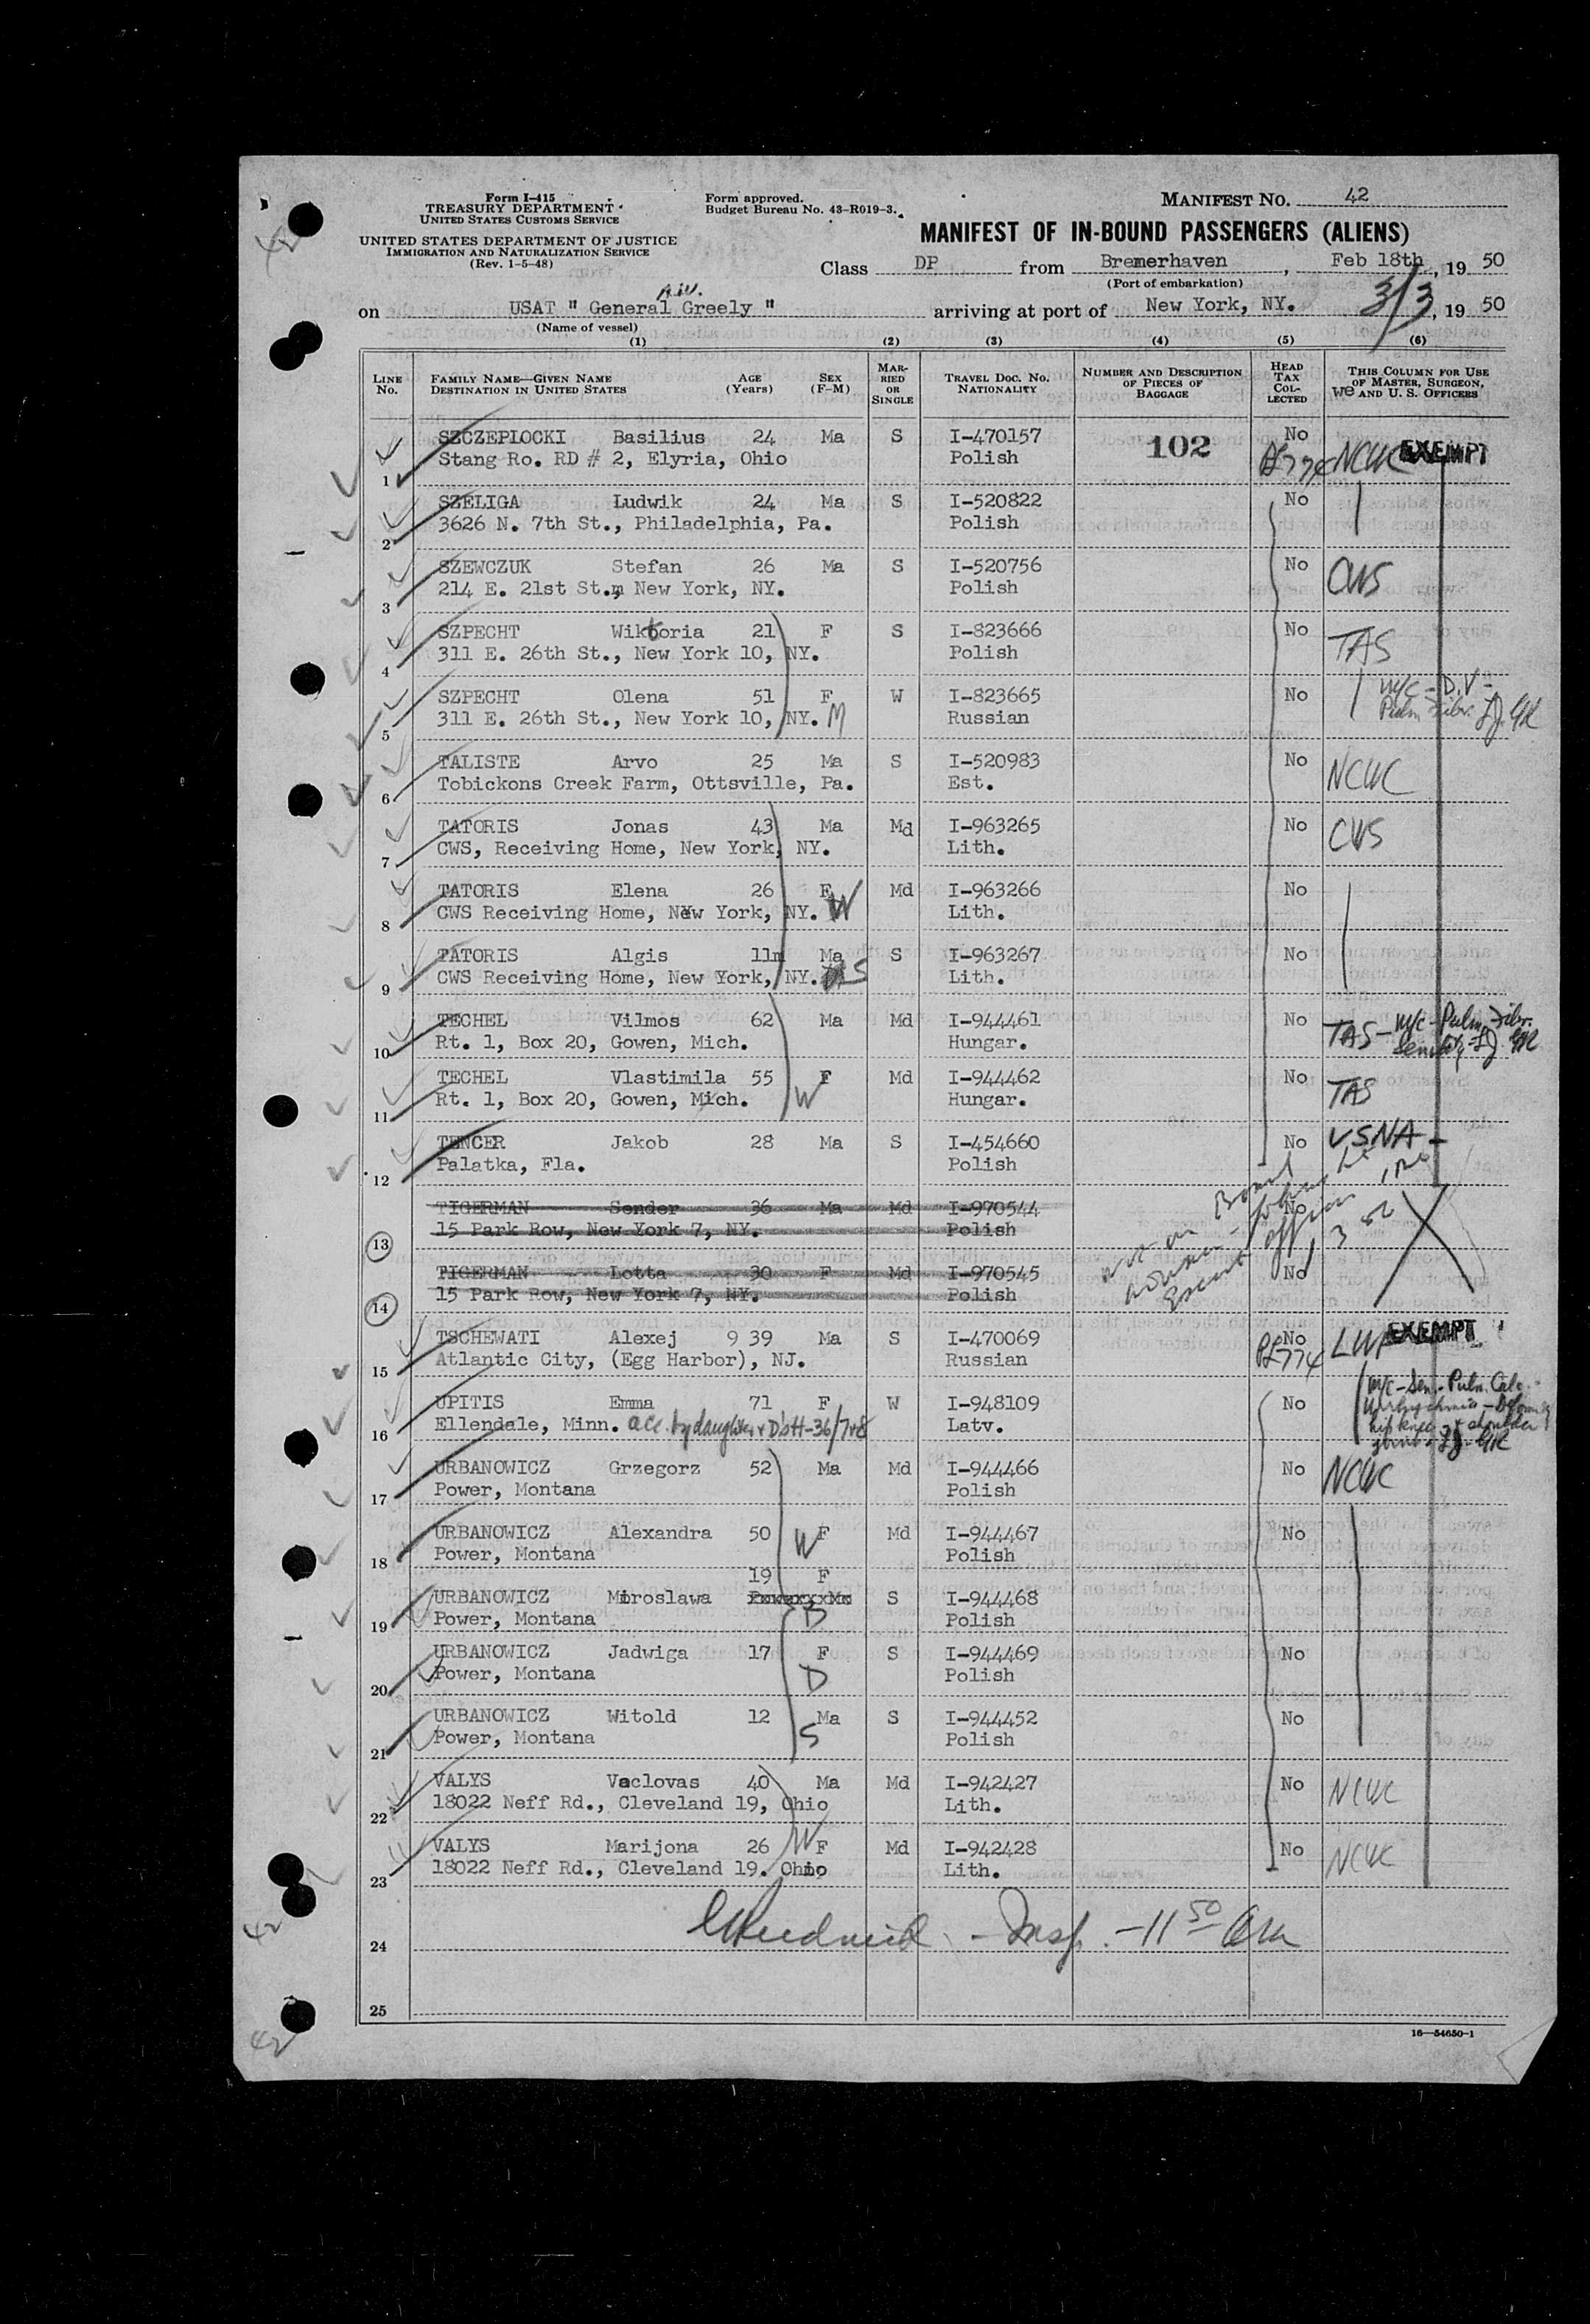 Form I-415
TREASURY DEPARTMENT
UNITED STATES CUSTOMS SERVICE
UNITED STATES DEPARTMENT OF JUSTICE
IMMIGRATION AND NATURALIZATION SERVICE
(Rev. 1-5-48)
Form approved.
Budget Bureau No. 43-R019-3.
MANIFEST NO. 42
MANIFEST OF IN-BOUND PASSENGERS (ALIENS)
Class DP from Bremerhaven, Feb 18th, 19 50
(Port of embarkation)
on USAT " General Greely " arriving at port of New York, NY. 3/3, 19 50
(Name of vessel)
(1) (2) (3) (4) (5) (6)
LINE No. FAMILY NAME—GIVEN NAME DESTINATION IN UNITED STATES AGE (Years) SEX (F-M) MARRIED OR SINGLE TRAVEL DOC. NO. NATIONALITY NUMBER AND DESCRIPTION OF PIECES OF BAGGAGE HEAD TAX COLLECTED THIS COLUMN FOR USE OF MASTER, SURGEON, AND U. S. OFFICERS
we
SZCZEPIOCKI Basilius 24 Ma S I-470157 102 No
1 Stang Ro. RD # 2, Elyria, Ohio Polish PL774 NCWC EXEMPT
SZELIGA Ludwik 24 Ma S I-520822 No
2 3626 N. 7th St., Philadelphia, Pa. Polish
SZEWCZUK Stefan 26 Ma S I-520756 No
3 214 E. 21st St., New York, NY. Polish CWS
SZPECHT Wiktoria 21 F S I-823666 No
4 311 E. 26th St., New York 10, NY. Polish TAS
SZPECHT Olena 51 F W I-823665 No
5 311 E. 26th St., New York 10, NY. M Russian
TALISTE Arvo 25 Ma S I-520983 No
6 Tobickons Creek Farm, Ottsville, Pa. Est. NCWC
TATORIS Jonas 43 Ma Md I-963265 No
7 CWS, Receiving Home, New York, NY. Lith. CWS
TATORIS Elena 26 F Md I-963266 No
8 CWS Receiving Home, New York, NY. W Lith.
TATORIS Algis 11m Ma S I-963267 No
9 CWS Receiving Home, New York, NY. S Lith.
TECHEL Vilmos 62 Ma Md I-944461 No
10 Rt. 1, Box 20, Gowen, Mich. Hungar. TAS
TECHEL Vlastimila 55 F Md I-944462 No
11 Rt. 1, Box 20, Gowen, Mich. W Hungar. TAS
TENCER Jakob 28 Ma S I-454660 No USNA
12 Palatka, Fla. Polish
TIGERMAN Sender 36 Ma Md I-970544 No
13 15 Park Row, New York 7, NY. Polish
TIGERMAN Lotta 30 F Md I-970545 No
14 15 Park Row, New York 7, NY. Polish
TSCHEWATI Alexej 9 39 Ma S I-470069 No
15 Atlantic City, (Egg Harbor), NJ. Russian PL774 LWF EXEMPT
UPITIS Emma 71 F W I-948109 No
16 Ellendale, Minn. acc. by daughter Latv.
URBANOWICZ Grzegorz 52 Ma Md I-944466 No
17 Power, Montana Polish NCWC
URBANOWICZ Alexandra 50 W F Md I-944467 No
18 Power, Montana Polish
19 F
URBANOWICZ Miroslawa S I-944468
19 Power, Montana D Polish
URBANOWICZ Jadwiga 17 F S I-944469 No
20 Power, Montana D Polish
URBANOWICZ Witold 12 Ma S I-944452 No
21 Power, Montana S Polish
VALYS Vaclovas 40 Ma Md I-942427 No
22 18022 Neff Rd., Cleveland 19, Ohio Lith. NCWC
VALYS Marijona 26 W F Md I-942428 No
23 18022 Neff Rd., Cleveland 19. Ohio Lith. NCWC
24 Insp. - 11 50
25
16—54650-1
42
42
42